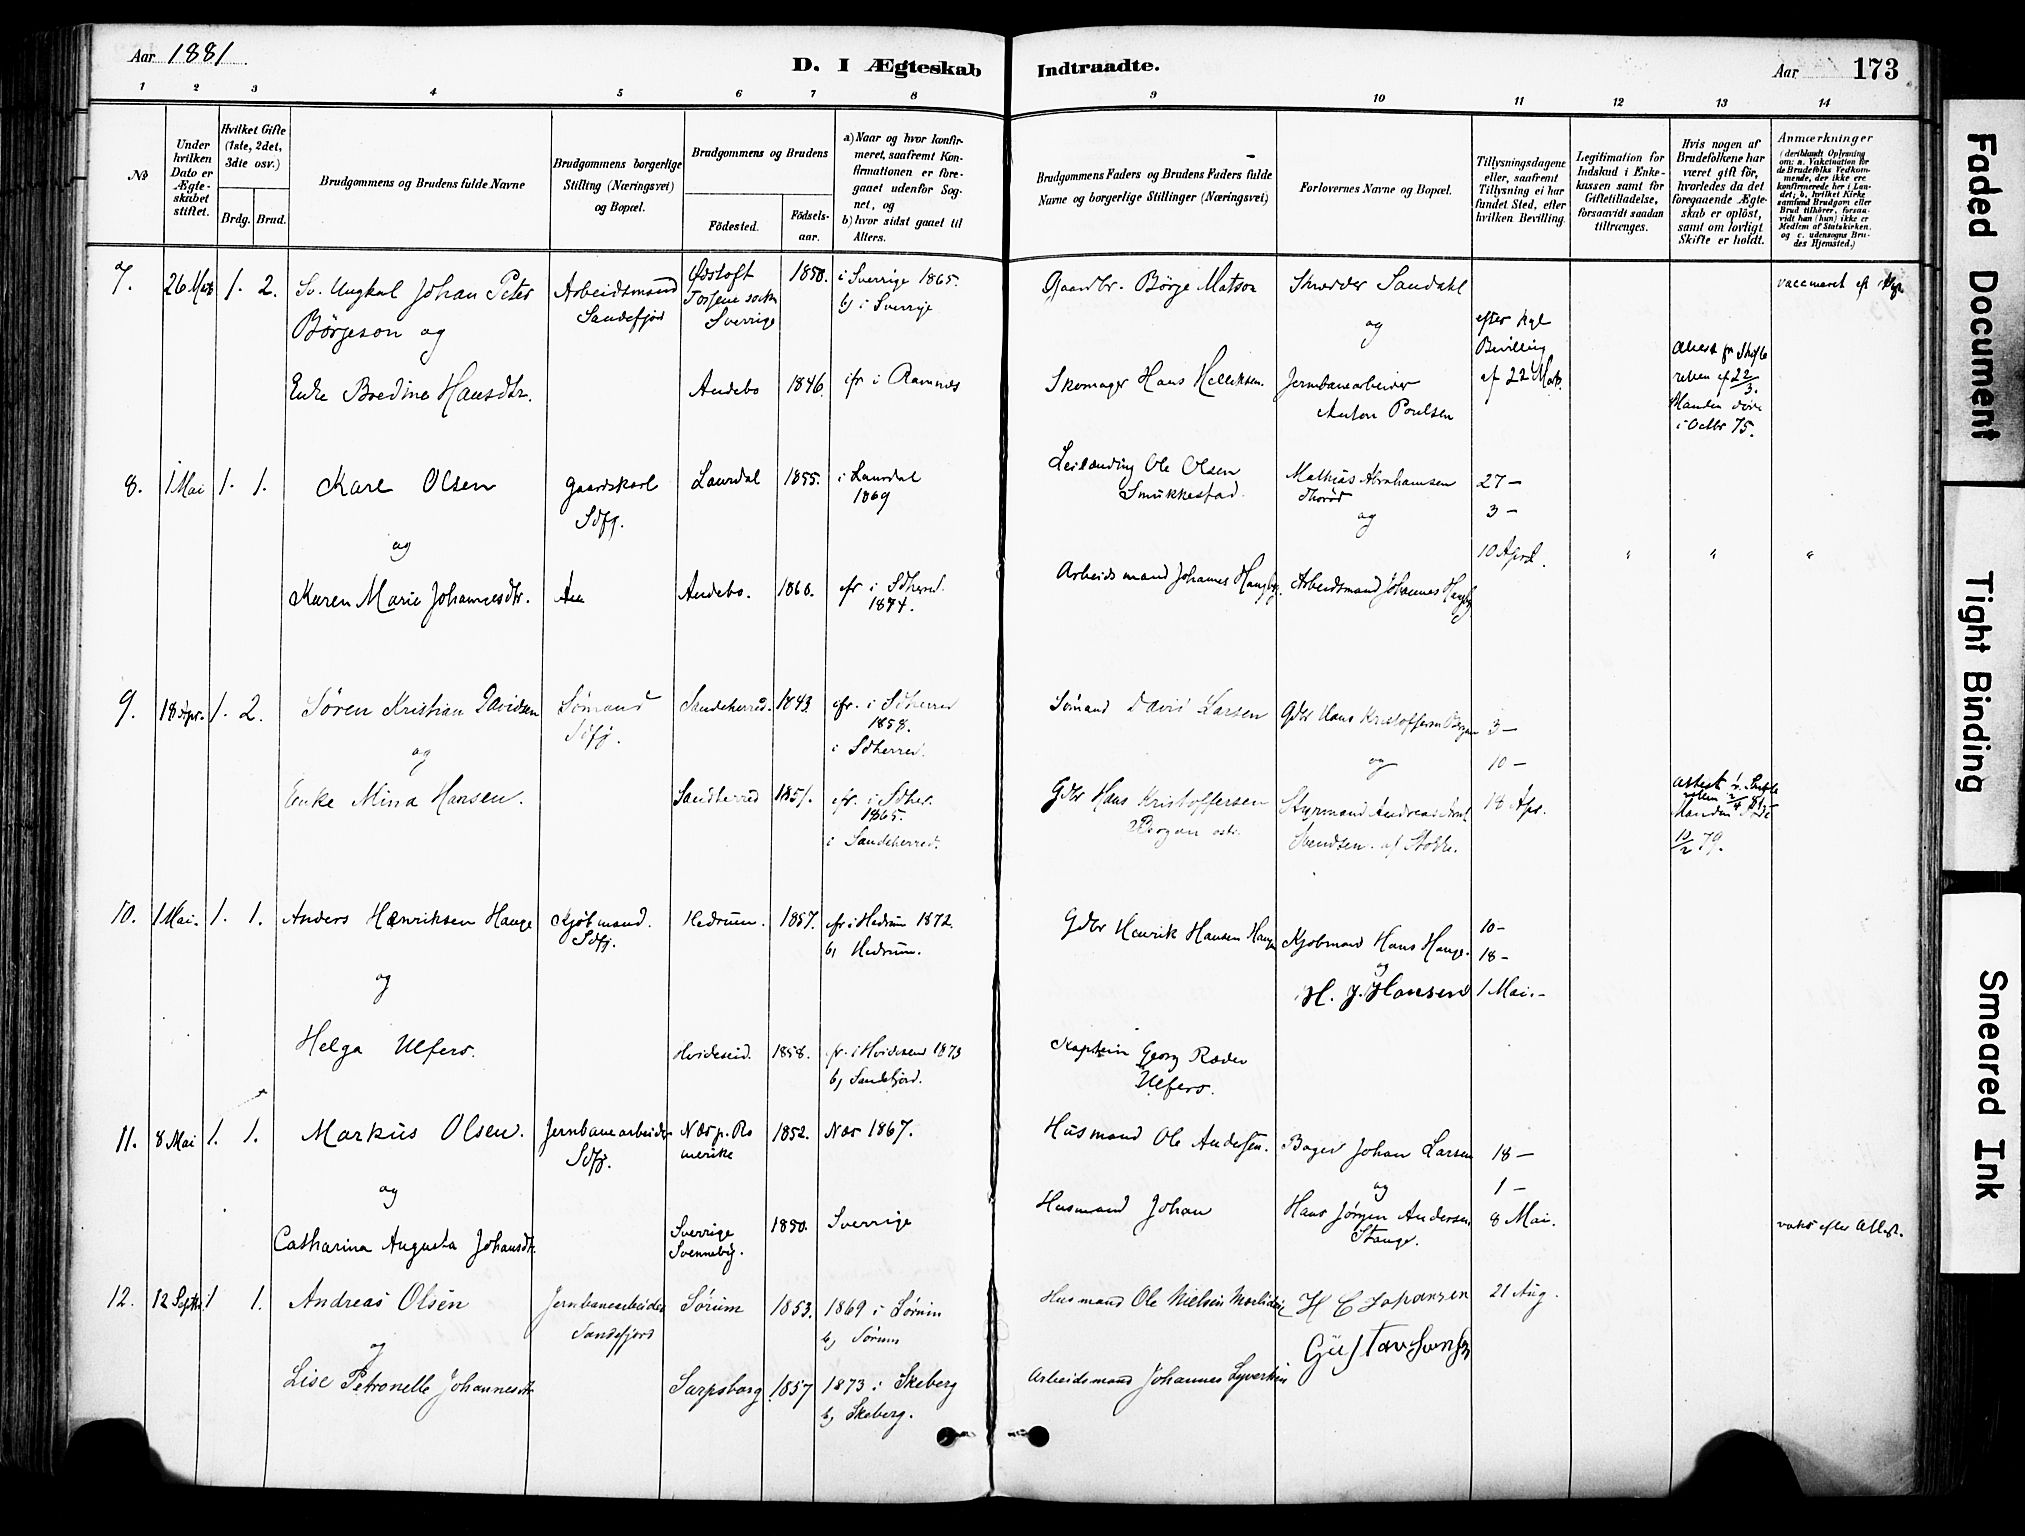 Aar 1881
D. I Ægteskab Indtraadte.
Aar 173
1 2 3 4 5 6 7 8 9 10 11 12 13 14
No
Under hvilken Dato er Ægteskabet stiftet.
Hvilket Gifte (1ste, 2det, 3die osv.)
Brdg. Brud.
Brudgommens og Brudens fulde Navne
Brudgommens borgerlige Stilling (Næringsvei) og Bopæl.
Brudgommens og Brudens
Födested.
Födselsaar.
a) Naar og hvor konfirmeret, saafremt Konfirmationen er foregaaet udenfor Sognet, og
b) hvor sidst gaaet til Alters.
Brudgommens Faders og Brudens Faders fulde Navne og borgerlige Stillinger (Næringsvei)
Forlovernes Navne og Bopæl.
Tillysningsdagene eller, saafremt Tillysning ei har fundet Sted, efter hvilken Bevilling.
Legitimation for Indskud i Enkekassen samt for Giftetilladelse, forsaavidt saadan tiltrænges.
Hvis nogen af Brudefolkene har været gift för, hvorledes da det foregaaende Ægteskab er oplöst, samt om lovligt Skifte er holdt.
Anmærkninger
(deriblandt Oplysning om: a. Vakcination for de Brudefolks Vedkommende, der ikke ere konfirmerede her i Landet; b. hvilket Kirkesamfund Brudgom eller Brud tilhörer, forsaavidt han (hun) ikke er Medlem af Statskirken. og c. udensogns Brudes Hjemsted.)
7. 26 Marts 1. 2. Sv. Ungkal Johan Peter Arbeidsmand 1850. i Sverrige 1865. Gaardbr. Börge Matson Skræder Sandahl
Börjeson og Sandefjord Sverrige b) i Sverrige og efter kgl Bevilling
Enke Bredine Hansdtr. Andebo 1846. cfr i Ramnes Skomager Hans Helliksen. Jernbanearbeider af 22 Mrts.
Anton Poulsen
Attest fr Skifteretten af 22/3. Manden döde i Octbr 75.
8. 1 Mai 1. 1. Karl Olsen Gaardskarl Laurdal 1855. i Laurdal Leilænding Ole Olsen Mathias Abrahamsen 27 –
Sdfj. 1869 Smukkestad. Thorød 3 –
og og 10 April. " " "
Karen Marie Johannesdtr. Andebo. 1860. cfr i Sdherred. Arbeidsmand Johannes Haugby. Arbeidsmand Johannes Haugby
1874.
9. 18 Apr. 1. 2. Sören Kristian Davidsen Sömand Sandeherred. 1843. cfr. i Sdherred Sömand David Larsen Gdbr Hans Kristoffersen Bergan 3 –
og Sdfj. 1858. og 10 –
i Sdherred.
Enke Mina Hansen. Sandherred 1851. cfr. i Sdher. Gdbr Hans Kristoffersen Styrmand Andreas 18 Apr.
1865. Bergan Svendsen. af Stokke.
i Sandeherred.
Manden döde 12/2 79.
10. 1 Mai. 1. 1. Anders Henriksen Hauge Kjöbmand. Hedrum. 1857. cfr i Hedrum 1872. Gdbr Henrik Hansen Hauge Kjöbmand Hans Hauge. 10 –
Sdfj. b) Hedrum. og 18 –
og H. J. Hansen 1 Mai. –
Helga Ulfers. Hvideseid. 1858. cfr. i Hvideseid 1873 Kaptein Georg Ræder
b) Sandefjord. Ulfers.
11. 8 Mai 1. 1. Markus Olsen. Jernbanearbeider Næs p. Romerike 1852. Næs 1867. Husmand Ole Andersen. Bager Johan Larsen 18 –
Sdfj.
og og 1 –
Catharina Augusta Johansdtr. Sverrige 1850. Sverrige Husmand Johan Hans Jörgen Andersen 8 Mai.
Svenneby. Stange. vaks efter Attest.
12. 12 Septbr 1 1. Andreas Olsen Jernbanearbeider Sörum 1853. 1869 i Sörum Husmand Ole Nielsen H C Johansen 21 Aug.
og Sandefjord b) Sörum Gustav
Lise Petronelle Johannesdtr Sarpsborg 1857 1873 i Skeberg Arbeidsmand Johannes
b) Skeberg.
Faded Document
Tight Binding
Smeared Ink